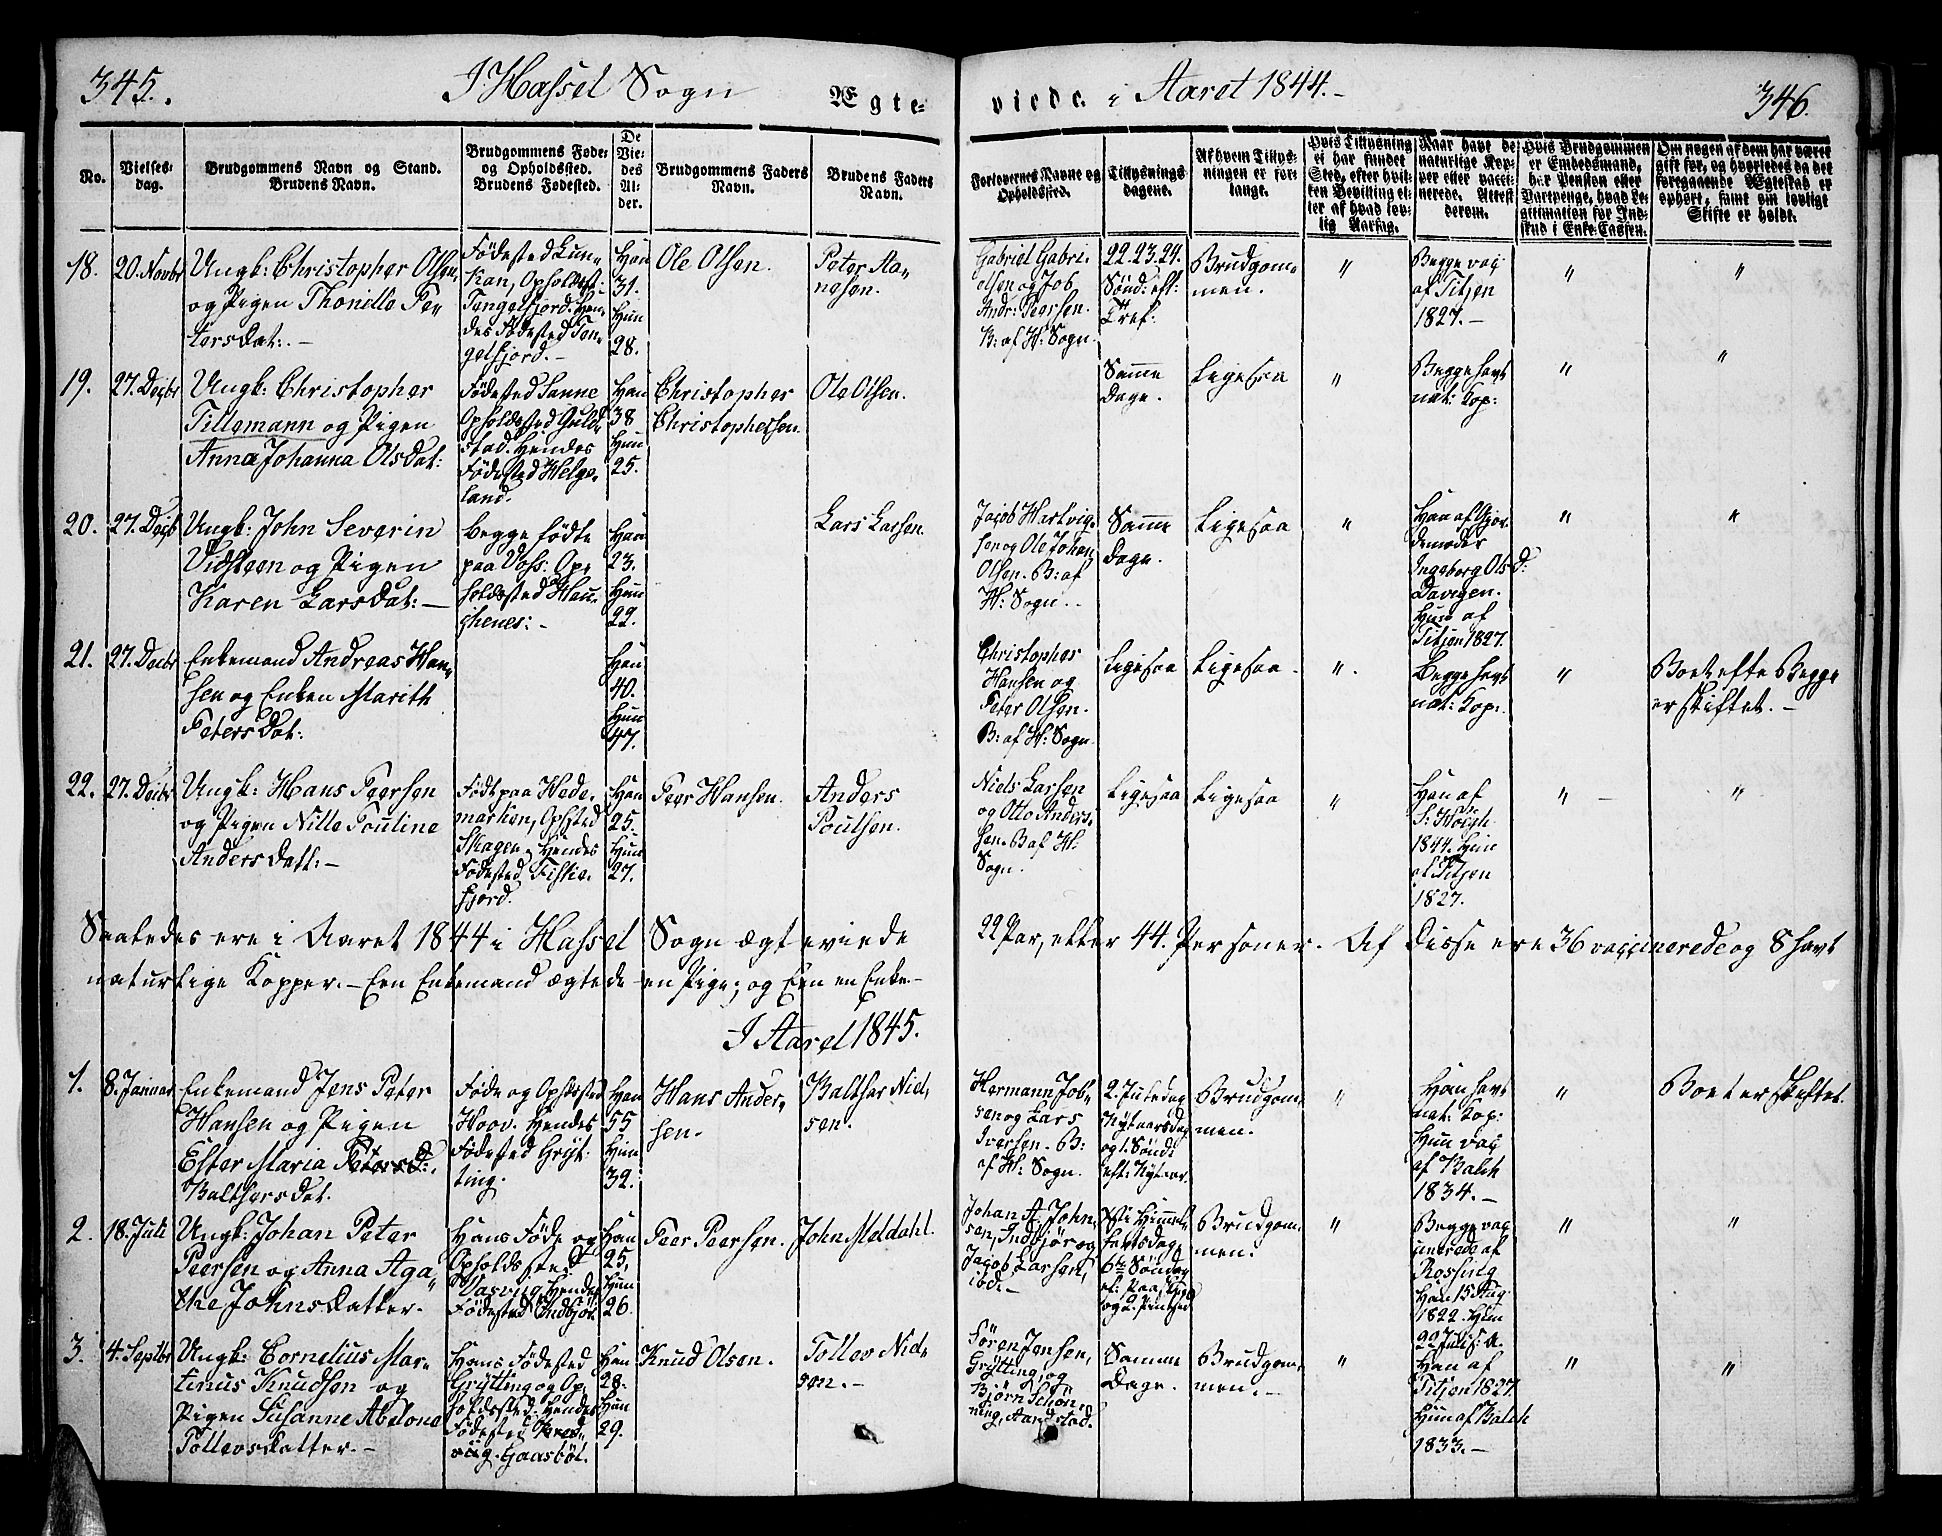 345.
I Hassel Sogn
Ægte-
viede.
i Aaret 1844.-
346.
No.
Vielses-
dag.
Brudgommens Navn og Stand.
Brudens Navn.
Brudgommens Føde-
og Opholdssted.
Brudens Fødested.
De
Vie-
des
Al-
der.
Brudgommens Faders
Navn.
Brudens Faders
Navn.
Forlovernes Navne og
Opholdssted.
Tillysnings
dagene.
Af hvem Tillys-
ningen er for-
lange.
Hvis Tillysning
ei har fundet
Sted, efter hvil-
ken Bevilling el-
ler af hvad lov-
lig Aarsag.
Naar havt de
naturlige Kop-
per eller vacci-
nerede. Attest
derom.
Hvis Brudgommen
er Embedsmand,
har Pension eller
Vartpenge, hvad Le-
gitimation for Ind-
skud i Enke-Cassen.
Om nogen af dem har været
gift før, og hvorledes da det
foregaaende Ægteskab er
ophørt, samt om lovligt
Skifte er holdt.
18.
20. Novbr
Ungk: Christopher Olsen
og Pigen Thonille Pe-
tersdat:.-
Födested Lun-
kan, Opholdsst:
Tengelfjord. Hen-
des Födested Ten-
gelfjord.-
Han
31.
Hun
28.
Ole Olsen.
Peter Aa-
gesen.
Gabriel Gabri-
elsen og Job
Andr: Peersen.
B: af H: Sogn.
22. 23. 24.
Sönd: eft:
Tref:
Brudgom-
men.
"
Begge vac
af Titjen
1827.-
"
"
19.
27. Decbr
Ungk: Christopher
Tillemann og Pigen
Anna Johanna Olsdat:
Födested Sanne
Opholdssted Guld-
stad. Hendes
Födested Helge-
land.
Han
38
Hun
25.
Christopher
Christophersen.
Ole Olsen.
Samme
Dage.
Ligesaa
"
Begge havt
nat: Kop:
"
"
20.
27. Decb
Ungk: John Severin
Vidsteen og Pigen
Karen Larsdat:-
Begge födte
paa Voss: Op-
holdssted Hau-
ghenes:-
Han
23.
Hun
22.
Lars Larsen.
Jacob Hartvig-
sen og Ole Johan
Olsen. B: af
H: Sogn.
Samme
Dage.
Ligesaa
"
Han af Gjor-
demoder
Ingeborg Olsd:
Davigen.
Hun af
Titjen 1827.
"
"
21.
27. Decbr
Enkemand Andreas Han-
sen og Enken Marith
Petersdat:
Han
40.
Hun
47.
Christopher
Hansen og
Peter Olsen.
B: af H: Sogn.
Ligesaa
Ligesaa.
"
Begge havt
nat: Kop:
"
Boet efte Begge
er skiftet.-
22.
27. Decbr
Ungk: Hans Peersen
og Pigen Nille Pouline
Andersdatt:-
Födt paa Hede-
marken, Opsted
Skagen. Hendes
Födested Fiskie-
fjord.
Han
25.
Hun
27.
Peer Hansen.
Anders
Poulsen.
Niels Larsen
og Otto Anders-
sen. B af H:
Sogn.
Ligesaa
Ligesaa
"
Han af
S: Hoegh
1844. Hun
af Titjen
1827.
"
"
Saaledes ere i Aaret 1844 i Hassel Sogn ægteviede 22 Par, eller 44. Personer. Af Disse ere 36 vaccinerede og 8 havt
naturlige Kopper.- Een Enkemand ægtede en Pige; og Een en Enke-
I Aaret 1845.
1.
8. Januar
Enkemand Jens Peter
Hansen og Pigen
Ester Maria Petersd:.
Balthersdat.
Föde og Opholdssted
Hoov. Hendes
Födested Gryt-
ting.
Han
55
Hun
32.
Hans Ander-
sen.
Balthser Niel-
sen.
Hermann Job-
sen og Lars
Iversen. B:
af H: Sogn.
2. Juledag
Nytaarsdag
og 1 Sönd:
eft: Nytaar.
Brudgom-
men.
"
Han havt
nat: Kop:
Hun vac
af Balch
1834.-
"
Boet er skiftet.
2.
18. Juli
Ungk: Johan Peter
Peersen og Anna Aga-
the Johnsdatter.
Hans Föde og
Opholdssted
Vasvig, Hendes
Födested Indbjör
Han
25,
Hun
26.
Peer Peersen.
John Meldahl.
Johan A. John-
sen, Indbjör og
Jacob Larsen,
ibd.-
Brudgom-
men.
"
Begge vac
cinerede af
Rossing
Han 15 Aug.
1822. Hun
22 Juli s. A.
"
"
3.
4. Septbr
Ungk: Cornelius Mar-
tinus Knudsen og
Pigen Susanne Abelone
Tollevsdatter.-
Hans Födested
Grytting og Op-
holdssted. Hendes
Födested Bred-
viig. Gaasböl.
Han
28.
Hun
29.
Knud Olsen.
Tollev Niel-
sen.-
Sören Jensen,
Grytting, og
Björn Schön-
ning, Aandstad.
Samme
Dage.
Brudgom-
men.-
"
Han af
Titjen 1827.
Hun af Balch
1833.-
"
"